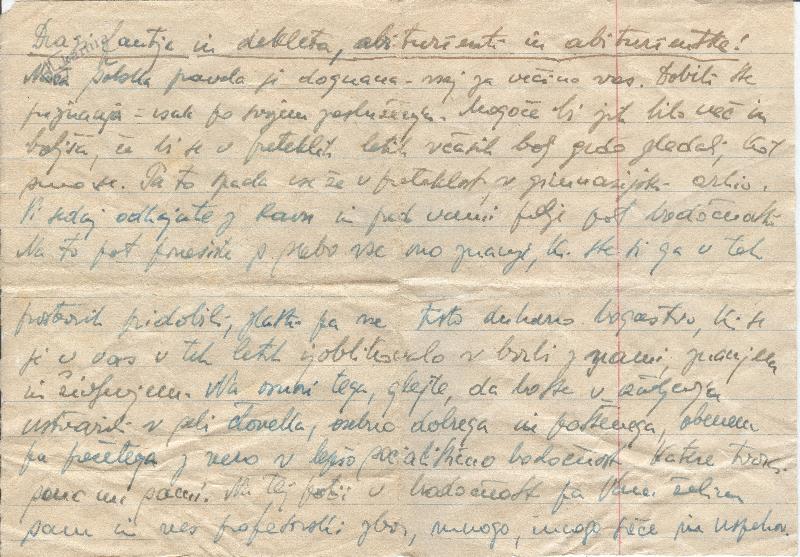 Dragi fantje in dekleta, abiturienti in abiturientke!
Naša šolska pravda je dognana - vsaj za večino vas. Dobili ste
priznanja - vsak po svojem zasluženju. Mogoče bi jih bilo več in
boljša, če bi se v preteklih letih včasih bolj grdo gledali, kot
smo se. Pa to spada vse že v preteklost, v gimnazijski arhiv.
Vi sedaj odhajate z Raven in pred vami je pot bodočnosti.
Na to pot ponesite s seboj vse ono znanje, ki ste si ga v teh
prostorih pridobili, zlasti pa vse tisto duhovno bogastvo, ki se
je v vas v teh letih izoblikovalo v borbi z nami, znanjem
in življenjem. Na osnovi tega, glejte, da boste v življenju
ustvarili v sebi človeka, osebno dobrega in poštenega, obenem
pa prežetega z vero v lepšo socialistično bodočnost, katere tvorci
smo mi sami. Na tej poti v bodočnost pa Vam želim
sam in ves profesorski zbor, mnogo, mnogo sreče in uspehov.